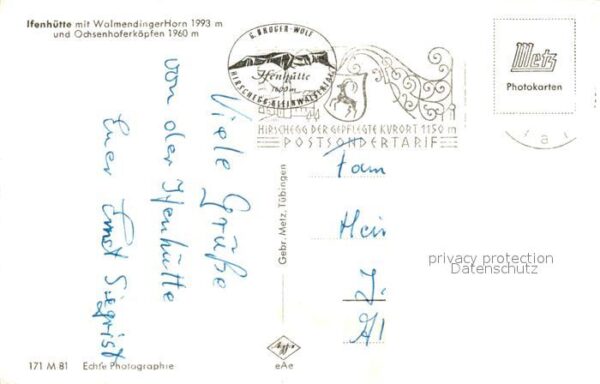 Ifenhütte mit WalmendingerHorn 1993 m
und Ochsenhoferköpfen 1960 m
Ifenhütte
1600 m
HIRSCHEGG-KLEINWALSERTAL
HIRSCHEGG DER GEPFLEGTE KURORT 1150 m
POSTSONDERTARIF
Metz
Photokarten
Viele Grüße
von der Ifenhütte
Euer Ernst Siegrist
Gebr. Metz, Tübingen
Fam
Heir
privacy protection
Datenschutz
171 M 81 Echte Photographie
Agfa
eAe